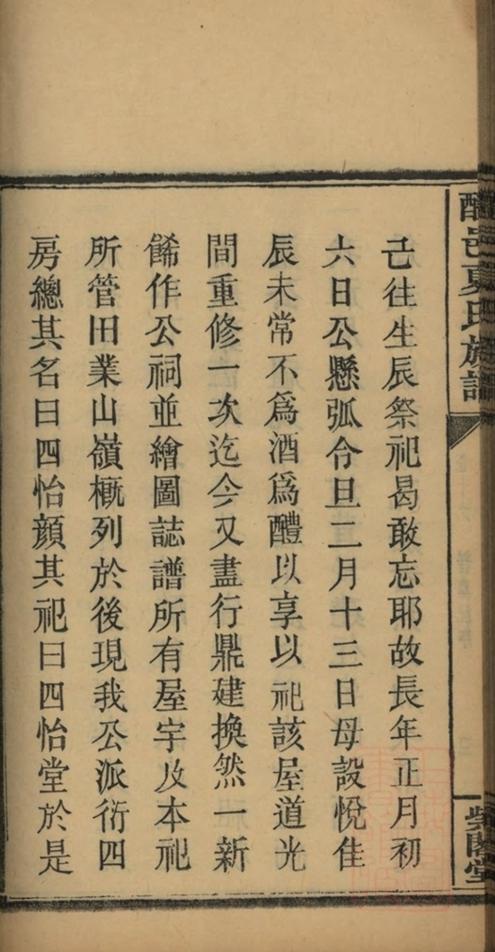 醴邑夏氏族譜
紫閣堂
已往生辰祭祀曷敢忘耶故長年正月初
六日公懸弧令旦二月十三日母設悅佳
辰未常不爲酒爲醴以享以祀該屋道光
間重修一次迄今又盡行鼎建換然一新
餙作公祠並繪圖誌譜所有屋宇及本祀
所管田業山嶺概列於後現我公派衍四
房總其名曰四怡顏其祀曰四怡堂於是